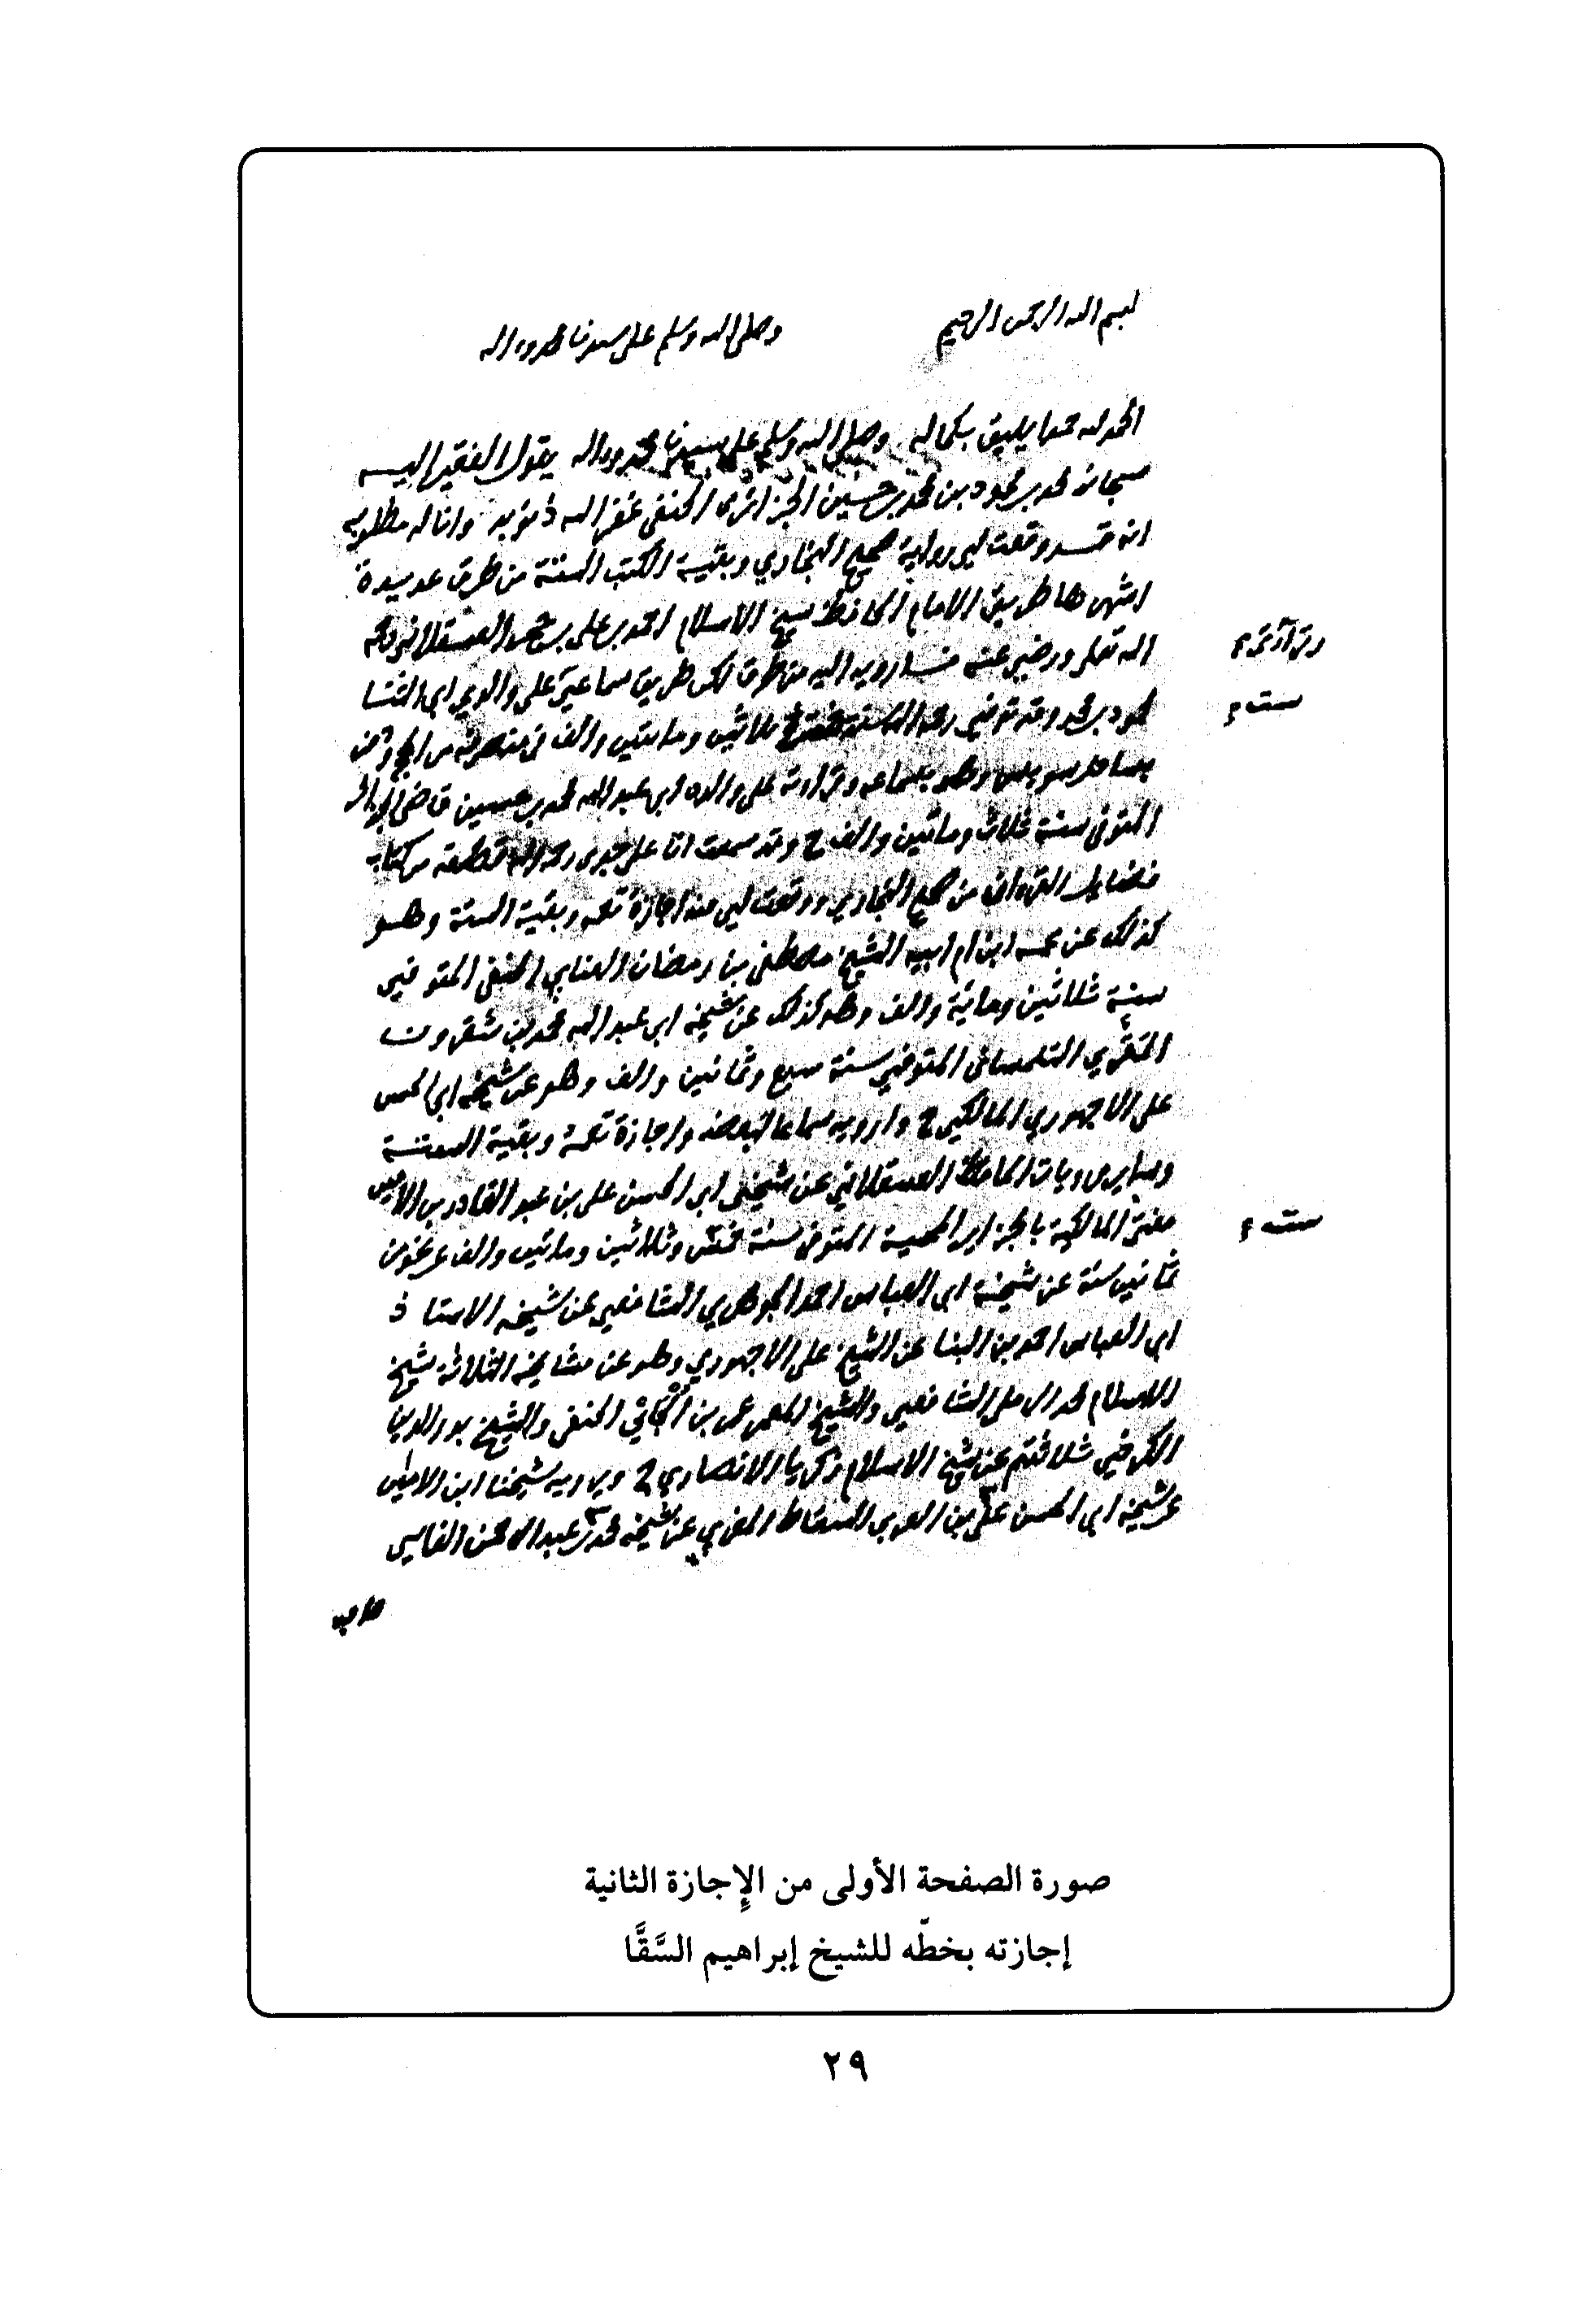 بسم الله الرحمن الرحيم وصلى الله وسلم على سيدنا محمد واله
الحمد لله حمدا يليق بكماله وصلى الله وسلم على سيدنا محمد واله يقول الفقير اليه
سبحانه محمد بن محمود بن محمد بن حسين الجزائرى الحنفى غفر الله ذنوبه واناله مطلوبه
انه قد وقعت لي رواية صحيح البخاري وبقية الكتب الستة من طرق عديدة
اشهرها طريق الامام الحافظ شيخ الاسلام احمد بن علي بن حجر العسقلاني رحمه
الله تعلى ورضي عنه فارويه اليه من طرق لكن طريق سماعي على والدي ابي الثنا
وقراءتي
محمود بن محمد وقد توفي رحمه الله سنة ثلاثين ومايتين والف في منصرفه من الحج ودفن
ست
بساحل سويس وهو بسماعه وقراءته على والده ابي عبد الله محمد بن حسين قاضي الجزائر
المتوفى سنة ثلاث ومائتين والف ح وقد سمعت انا على جدي رحمه الله قطعة من كتاب
فضايل القرءان من صحيح البخاري ووقعت لي منه اجازة تتمه وبقية الستة وهو
كذلك عن عمه ابن ام ابيه الشيخ مصطفى بن رمضان العنابي الحنفي المتوفي
سنة ثلاثين ومائية والف وهو كذلك عن شيخه ابي عبد الله محمد بن شقرون
المقري التلمساني المتوفي سنة سبع وثمانين والف وهو عن شيخه ابي الحسن
علي الاجهوري المالكي ح وارويه سماعا لبعضه واجازة تتمة وبقية الستة
وساير مرويات الحافظ العسقلاني عن شيخي ابي الحسن علي بن عبد القادر بن الامين
مفتي المالكية بالجزاير المحمية المتوفى سنة وثلاثين ومايتين والف عن نحو من
ست
ثمانين سنة عن شيخه ابي العباس احمد الجوهري الشافعي عن شيخه الاستاذ
ابي العباس احمد بن البنا عن الشيخ علي الاجهوري وهو عن مشايخه الثلاثة شيخ
الاسلام محمد الرملي الشافعي والشيخ المعمر عمر بن الجائي الحنفي والشيخ بدر الدين
الكرخي ثلاثتهم عن شيخ الاسلام زكريا الانصاري ح ويرويه شيخنا ابن الامين
عن شيخه ابي الحسن علي بن العربي السقاط المغربي عن شيخه محمد بن عبد الرحمن الفاسي
صورة الصفحة الأولى من الإجازة الثانية
إجازته بخطّه للشيخ إبراهيم السَّقَّا
٢٩